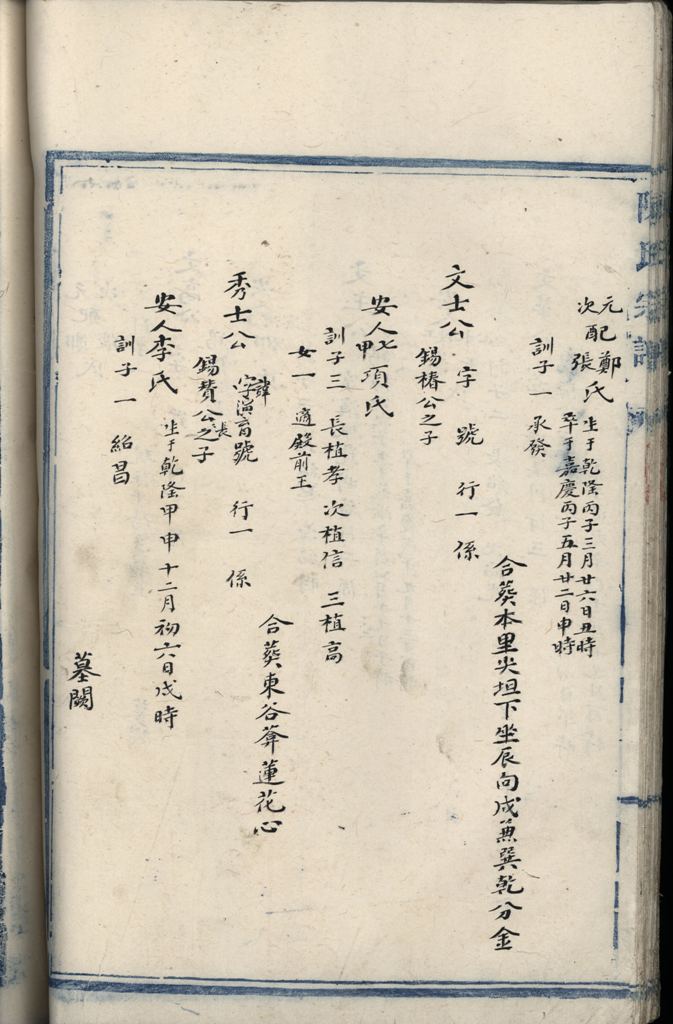 陳氏宗譜
元配鄭氏
次張
生于乾隆丙子三月廿六日丑時
卒于嘉慶丙子五月廿二日申時
訓子一 承發
合葬本里尖坦下坐辰向戍兼巽乾分金
文士公 字 號 行一 係
錫椿公之子
安人七甲項氏
訓子三 長植孝 次植信 三植高
女一 適殿前王
合葬東谷葊蓮花心
秀士公 諱字演育號 行一 係
錫贊公之長子
安人李氏 生于乾隆甲申十二月初六日戌時
訓子一 紹昌
墓闕